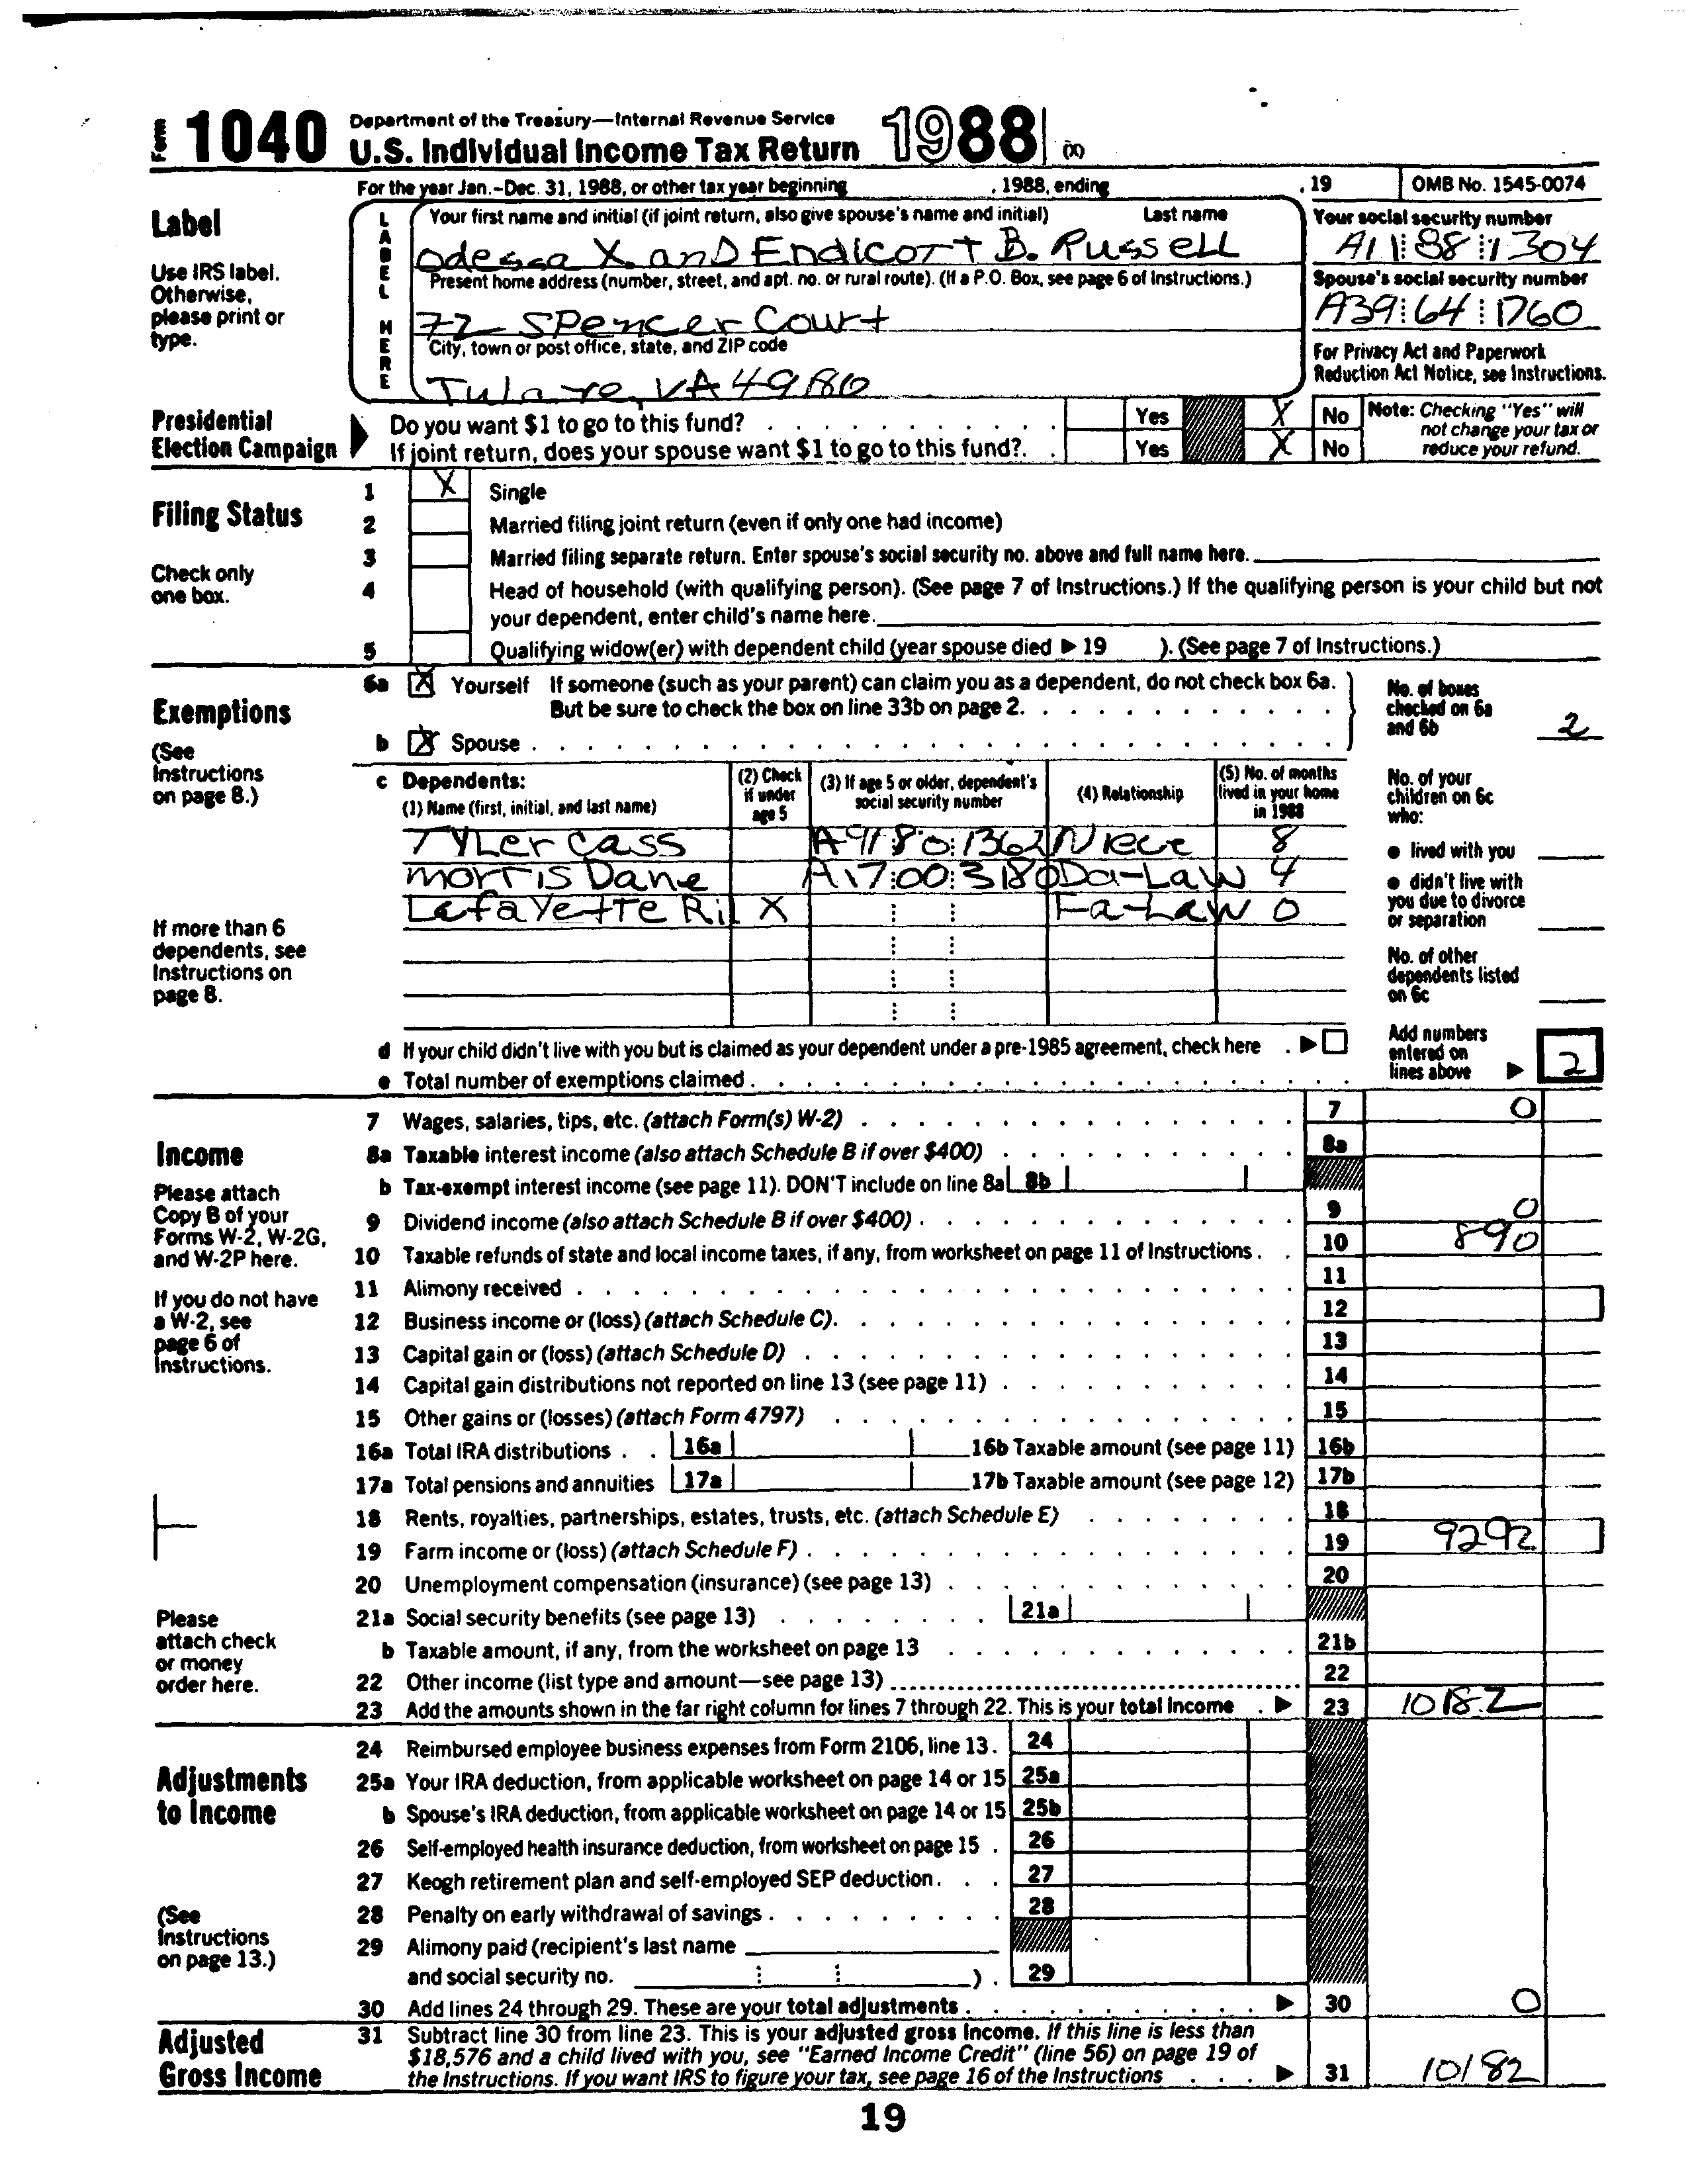 Form 1040 Department of the Treasury—Internal Revenue Service
U.S. Individual Income Tax Return 1988 (X)
For the year Jan.-Dec. 31, 1988, or other tax year beginning , 1988, ending , 19 OMB No. 1545-0074
Label
Use IRS label. Otherwise, please print or type.
LABEL HERE
Your first name and initial (if joint return, also give spouse's name and initial) Last name
Odessa X. and Endicott B. Russell
Your social security number
A11 88 1304
Present home address (number, street, and apt. no. or rural route). (If a P.O. Box, see page 6 of Instructions.)
72 Spencer Court
Spouse's social security number
A39 64 1760
City, town or post office, state, and ZIP code
Tulare, VA 49980
For Privacy Act and Paperwork Reduction Act Notice, see Instructions.
Presidential Election Campaign
Do you want $1 to go to this fund? Yes X No
If joint return, does your spouse want $1 to go to this fund? Yes X No
Note: Checking "Yes" will not change your tax or reduce your refund.
Filing Status
Check only one box.
1 X Single
2 Married filing joint return (even if only one had income)
3 Married filing separate return. Enter spouse's social security no. above and full name here.
4 Head of household (with qualifying person). (See page 7 of Instructions.) If the qualifying person is your child but not
your dependent, enter child's name here.
5 Qualifying widow(er) with dependent child (year spouse died ▶ 19 ). (See page 7 of Instructions.)
Exemptions
(See Instructions on page 8.)
6a X Yourself If someone (such as your parent) can claim you as a dependent, do not check box 6a.
But be sure to check the box on line 33b on page 2.
b X Spouse
No. of boxes checked on 6a and 6b 2
c Dependents:
(1) Name (first, initial, and last name) (2) Check if under age 5 (3) If age 5 or older, dependent's social security number (4) Relationship (5) No. of months lived in your home in 1988
Tyler Cass A91 80 1362 Niece 8
Morris Dane A17 00 3180 Da-Law 4
Lafayette Ril X Fa-Law 0
If more than 6 dependents, see Instructions on page 8.
No. of your children on 6c who:
● lived with you
● didn't live with you due to divorce or separation
No. of other dependents listed on 6c
d If your child didn't live with you but is claimed as your dependent under a pre-1985 agreement, check here ▶
e Total number of exemptions claimed
Add numbers entered on lines above ▶ 2
Income
Please attach Copy B of your Forms W-2, W-2G, and W-2P here.
If you do not have a W-2, see page 6 of Instructions.
Please attach check or money order here.
7 Wages, salaries, tips, etc. (attach Form(s) W-2) 7 0
8a Taxable interest income (also attach Schedule B if over $400) 8a
b Tax-exempt interest income (see page 11). DON'T include on line 8a 8b
9 Dividend income (also attach Schedule B if over $400) 9 0
10 Taxable refunds of state and local income taxes, if any, from worksheet on page 11 of Instructions 10 890
11 Alimony received 11
12 Business income or (loss) (attach Schedule C) 12
13 Capital gain or (loss) (attach Schedule D) 13
14 Capital gain distributions not reported on line 13 (see page 11) 14
15 Other gains or (losses) (attach Form 4797) 15
16a Total IRA distributions 16a 16b Taxable amount (see page 11) 16b
17a Total pensions and annuities 17a 17b Taxable amount (see page 12) 17b
18 Rents, royalties, partnerships, estates, trusts, etc. (attach Schedule E) 18
19 Farm income or (loss) (attach Schedule F) 19 9292
20 Unemployment compensation (insurance) (see page 13) 20
21a Social security benefits (see page 13) 21a
b Taxable amount, if any, from the worksheet on page 13 21b
22 Other income (list type and amount—see page 13) 22
23 Add the amounts shown in the far right column for lines 7 through 22. This is your total income ▶ 23 10182
Adjustments to Income
(See Instructions on page 13.)
24 Reimbursed employee business expenses from Form 2106, line 13. 24
25a Your IRA deduction, from applicable worksheet on page 14 or 15 25a
b Spouse's IRA deduction, from applicable worksheet on page 14 or 15 25b
26 Self-employed health insurance deduction, from worksheet on page 15 26
27 Keogh retirement plan and self-employed SEP deduction 27
28 Penalty on early withdrawal of savings 28
29 Alimony paid (recipient's last name
and social security no. ) 29
30 Add lines 24 through 29. These are your total adjustments ▶ 30 0
Adjusted Gross Income
31 Subtract line 30 from line 23. This is your adjusted gross income. If this line is less than
$18,576 and a child lived with you, see "Earned Income Credit" (line 56) on page 19 of
the Instructions. If you want IRS to figure your tax, see page 16 of the Instructions ▶ 31 10182
19